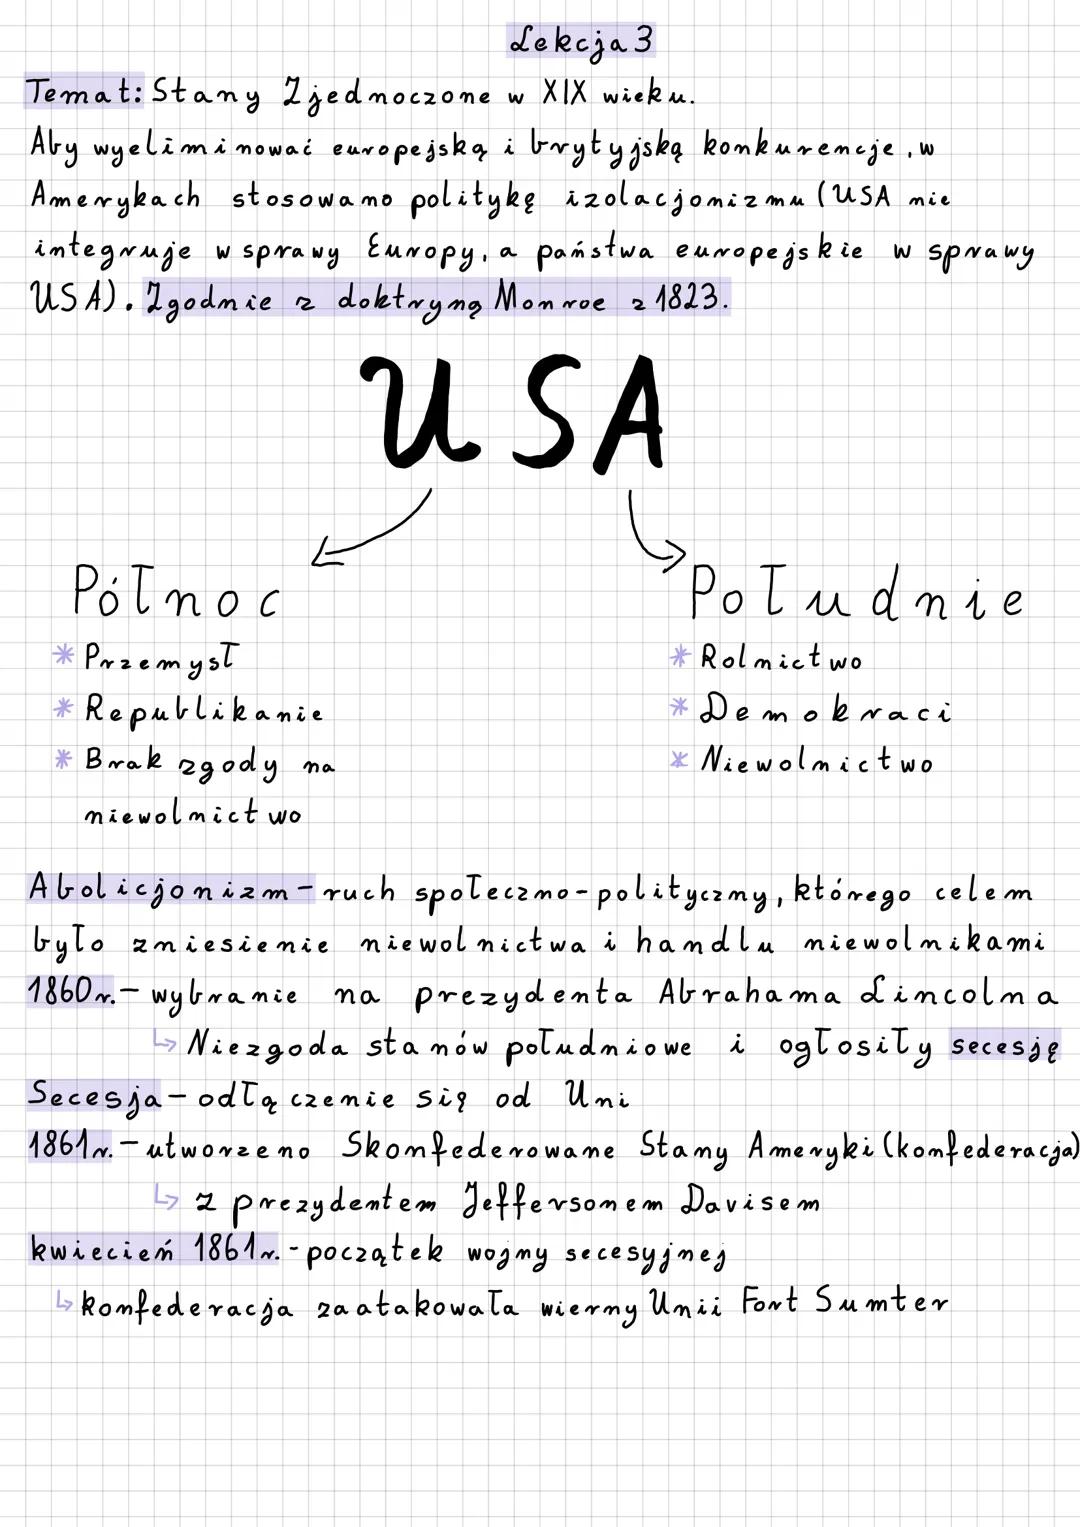 Lekcja 3
Temat: Stany Zjednoczone w XIX wieku.
Aby wyeliminować europejską i brytyjską konkurencje, w
Amerykach stosowano politykę izolacjonizmu (USA nie
integruje w sprawy Europy, a państwa europejskie w sprawy
USA). Zgodnie z doktryną Monroe z 1823.
USA
Północ
Południe
* Przemysł
* Rolnictwo
* Republikanie
* Demokraci
* Brak zgody na
* Niewolnictwo
niewolnictwo
Abolicjonizm - ruch społeczno-polityczny, którego celem
było zniesienie niewolnictwa i handlu niewolnikami
1860r. - wybranie na prezydenta Abrahama Lincolna
↳ Niezgoda stanów południowe i ogłosiły secesję
Secesja - odłączenie się od Uni
1861r. - utworzeno Skonfederowane Stany Ameryki (konfederacja)
↳ z prezydentem Jeffersonem Davisem
kwiecień 1861r. - początek wojny secesyjnej
↳ konfederacja zaatakowała wierny Unii Fort Sumter